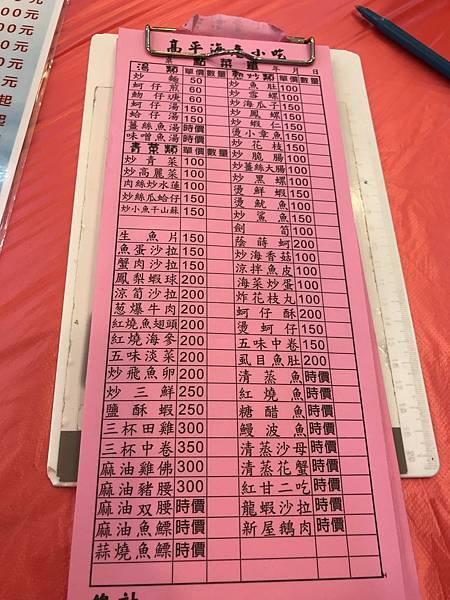 高平海產小吃
點菜單
年 日
湯類 單價 數量
炒麵 50
蚵仔煎 60
蚵仔湯 150
蛤仔湯 150
薑絲魚湯 時價
味噌魚湯 時價
青菜類 單價 數量
炒青菜 100
炒高麗菜 100
肉絲炒水蓮 100
炒絲瓜蛤仔 150
炒小魚干山蘇 150
生魚片 150
魚蛋沙拉 150
蟹肉沙拉 150
鳳梨蝦球 200
涼筍沙拉 200
蔥爆牛肉 200
紅燒魚翅頭 200
紅燒海參 200
五味淡菜 200
炒飛魚卵 200
炒三鮮 250
鹽酥蝦 250
三杯田雞 300
三杯中卷 350
麻油雞佛 300
麻油豬腰 300
麻油双腰 時價
麻油魚鰾 時價
蒜燒魚鰾 時價
單價 數量
炒魚肚 100
炒雪螺 100
炒海瓜子 150
炒鳳螺 150
炒蝦仁 150
燙小章魚 150
炒花枝 150
炒脆腸 100
炒薑絲大腸 100
炒黑螺 100
燙鮮蝦 150
燙魷魚 100
炒鯊魚 150
劍筍 100
蔭蒔蚵 200
炒海香菇 100
涼拌魚皮 100
海菜炒蛋 100
炸花枝丸 100
蚵仔酥 200
燙蚵仔 150
五味中卷 150
虱目魚肚 200
清蒸魚 時價
紅燒魚 時價
糖醋魚 時價
鰻波魚 時價
清蒸沙母 時價
清蒸花蟹 時價
紅甘二吃 時價
龍蝦沙拉 時價
新屋鵝肉 時價